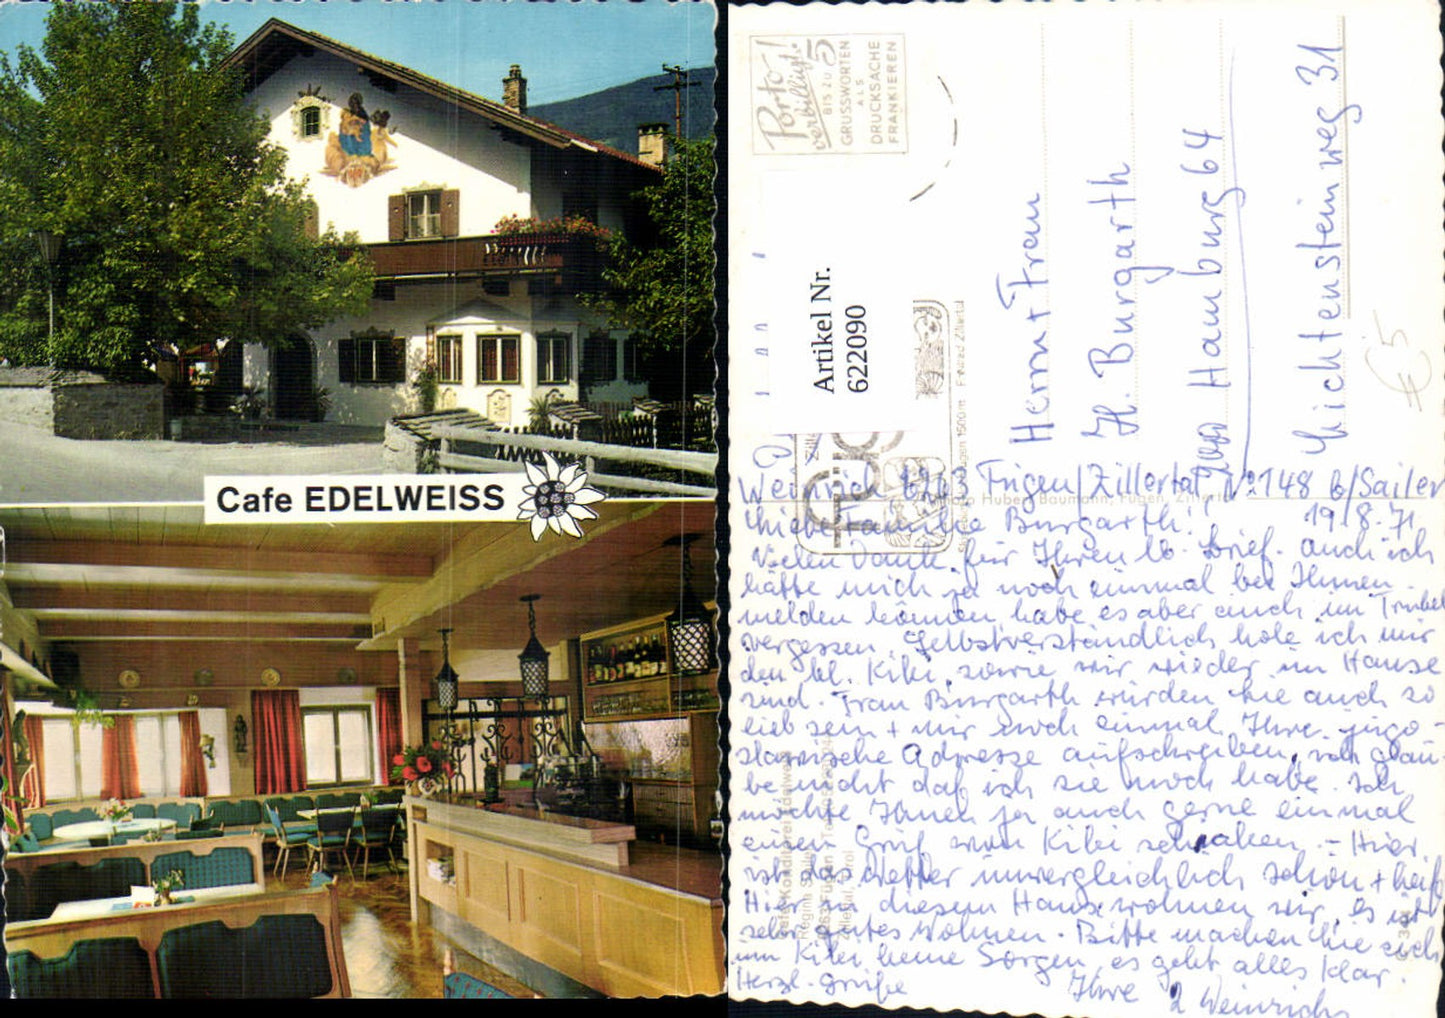 Cafe EDELWEISS
Porto-!
verbilligt!
BIS ZU 5
GRUSSWORTEN
ALS
DRUCKSACHE
FRANKIEREN
Artikel Nr.
622090
Herrn + Frau
H. Burgarth
Hamburg 64
Lichtensteinweg 31
€5
Fügen/Zillertal, No 148 b/Sailer
Liebe Familie Burgarth! 19.8.71
Vielen Dank für Ihren lb. Brief. Auch ich
hätte mich ja noch einmal bei Ihnen
melden können, habe es aber auch im Trubel
vergessen. Selbstverständlich hole ich mir
den bl. Kiki, sowie wir wieder im Hause
sind. Frau Burgarth würden Sie auch so
lieb sein + mir noch einmal Ihre jugo-
slawische Adresse aufschreiben, ich glau-
be nicht daß ich sie noch habe. Ich
möchte Ihnen ja auch gerne einmal
einen Gruß von Kiki schicken. - Hier
ist das Wetter unvergleichlich schön + heiß
Hier in diesem Hause wohnen wir. Es ist
sehr gutes Wohnen. Bitte machen Sie sich
um Kiki keine Sorgen, es geht alles klar.
Herzl. Grüße
Ihre 2 Weinrichs
Foto Hubert Baumann, Fügen, Zillertal
Cafe Konditorei Edelweiss